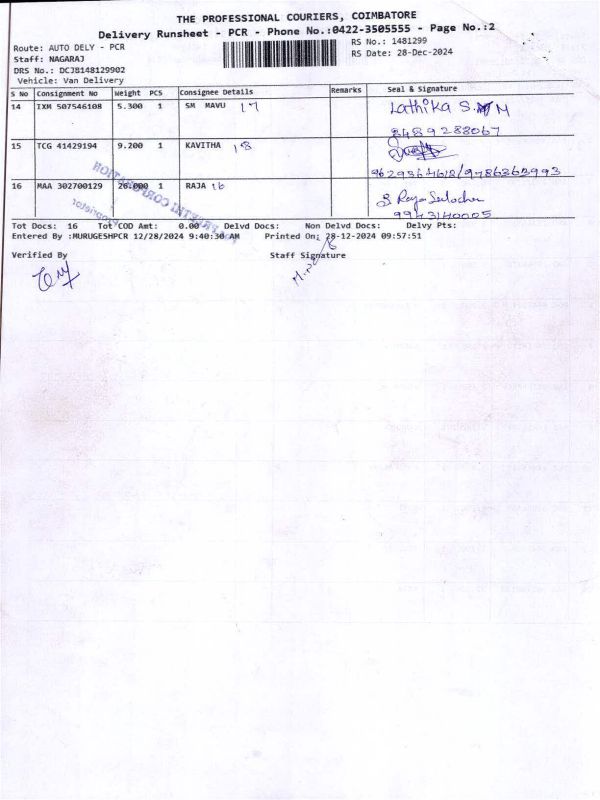 THE PROFESSIONAL COURIERS, COIMBATORE
Delivery Runsheet - PCR - Phone No.:0422-3505555 - Page No.:2
Route: AUTO DELY - PCR
RS No.: 1481299
Staff: NAGARAJ
RS Date: 28-Dec-2024
DRS No.: DCJB148129902
Vehicle: Van Delivery
S No Consignment No Weight PCS Consignee Details Remarks Seal & Signature
14 IXM 507546108 5.300 1 SM MAVU 17 Lathika S.M
8489288067
15 TCG 41429194 9.200 1 KAVITHA 18
9629364612/9786363993
16 MAA 302700129 26.000 1 RAJA 16 S Raja
9943140005
Tot Docs: 16 Tot COD Amt: 0.00 Delvd Docs: Non Delvd Docs: Delvy Pts:
Entered By :MURUGESHPCR 12/28/2024 9:40:30 AM Printed On: 28-12-2024 09:57:51
Verified By Staff Signature